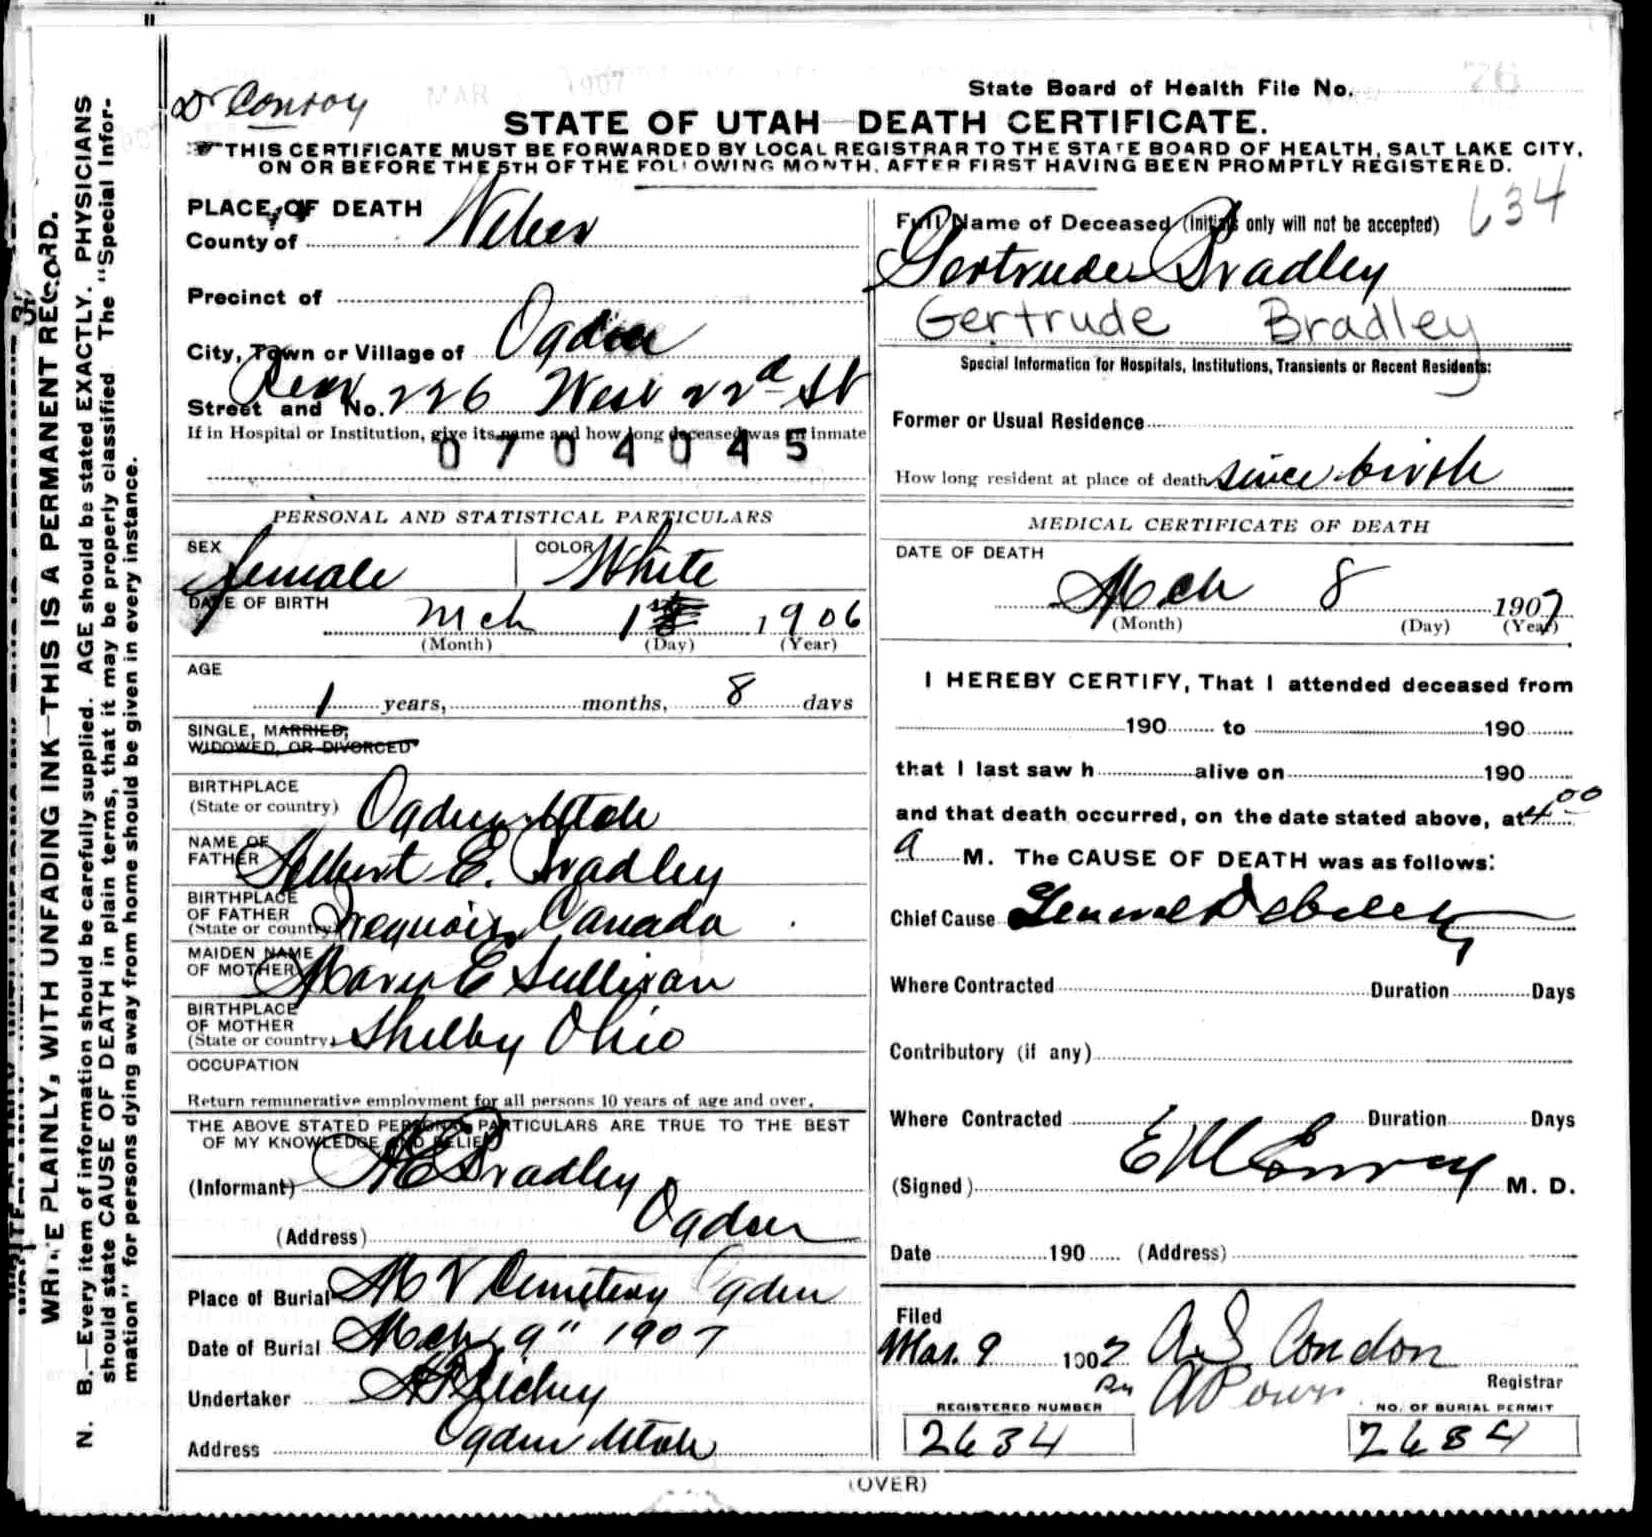 Dr Conroy
MAR 1907
State Board of Health File No. 26
STATE OF UTAH—DEATH CERTIFICATE.
THIS CERTIFICATE MUST BE FORWARDED BY LOCAL REGISTRAR TO THE STATE BOARD OF HEALTH, SALT LAKE CITY,
ON OR BEFORE THE 5TH OF THE FOLLOWING MONTH, AFTER FIRST HAVING BEEN PROMPTLY REGISTERED.
WRITE PLAINLY, WITH UNFADING INK—THIS IS A PERMANENT RECORD.
N. B.—Every item of information should be carefully supplied. AGE should be stated EXACTLY. PHYSICIANS
should state CAUSE OF DEATH in plain terms, that it may be properly classified. The "Special Infor-
mation" for persons dying away from home should be given in every instance.
PLACE OF DEATH
County of Weber
Precinct of
City, Town or Village of Ogden
Street and No. Rear 226 West 22d St
If in Hospital or Institution, give its name and how long deceased was an inmate
0704045
PERSONAL AND STATISTICAL PARTICULARS
SEX female COLOR White
DATE OF BIRTH Mch 1 1906
(Month) (Day) (Year)
AGE
1 years, months, 8 days
SINGLE, MARRIED,
WIDOWED, OR DIVORCED
BIRTHPLACE
(State or country) Ogden Utah
NAME OF
FATHER Albert E. Bradley
BIRTHPLACE
OF FATHER
(State or country) Iroquois, Canada
MAIDEN NAME
OF MOTHER Mary E Sullivan
BIRTHPLACE
OF MOTHER
(State or country) Shelby Ohio
OCCUPATION
Return remunerative employment for all persons 10 years of age and over.
THE ABOVE STATED PERSONAL PARTICULARS ARE TRUE TO THE BEST
OF MY KNOWLEDGE AND BELIEF
(Informant) A E Bradley
(Address) Ogden
Place of Burial Mt V Cemetery Ogden
Date of Burial Mch. 9" 1907
Undertaker
Address Ogden Utah
634
Full Name of Deceased (Initials only will not be accepted)
Gertrude Bradley
Gertrude Bradley
Special Information for Hospitals, Institutions, Transients or Recent Residents:
Former or Usual Residence
How long resident at place of death since birth
MEDICAL CERTIFICATE OF DEATH
DATE OF DEATH
Mch 8 1907
(Month) (Day) (Year)
I HEREBY CERTIFY, That I attended deceased from
190 to 190
that I last saw h alive on 190
and that death occurred, on the date stated above, at 4.00
a M. The CAUSE OF DEATH was as follows:
Chief Cause General Debility
Where Contracted Duration Days
Contributory (if any)
Where Contracted Duration Days
(Signed) E M Conroy M. D.
Date 190 (Address)
Filed
Mar. 9 1907 A. S. Condon
Registrar
REGISTERED NUMBER
2634
NO. OF BURIAL PERMIT
2684
(OVER)